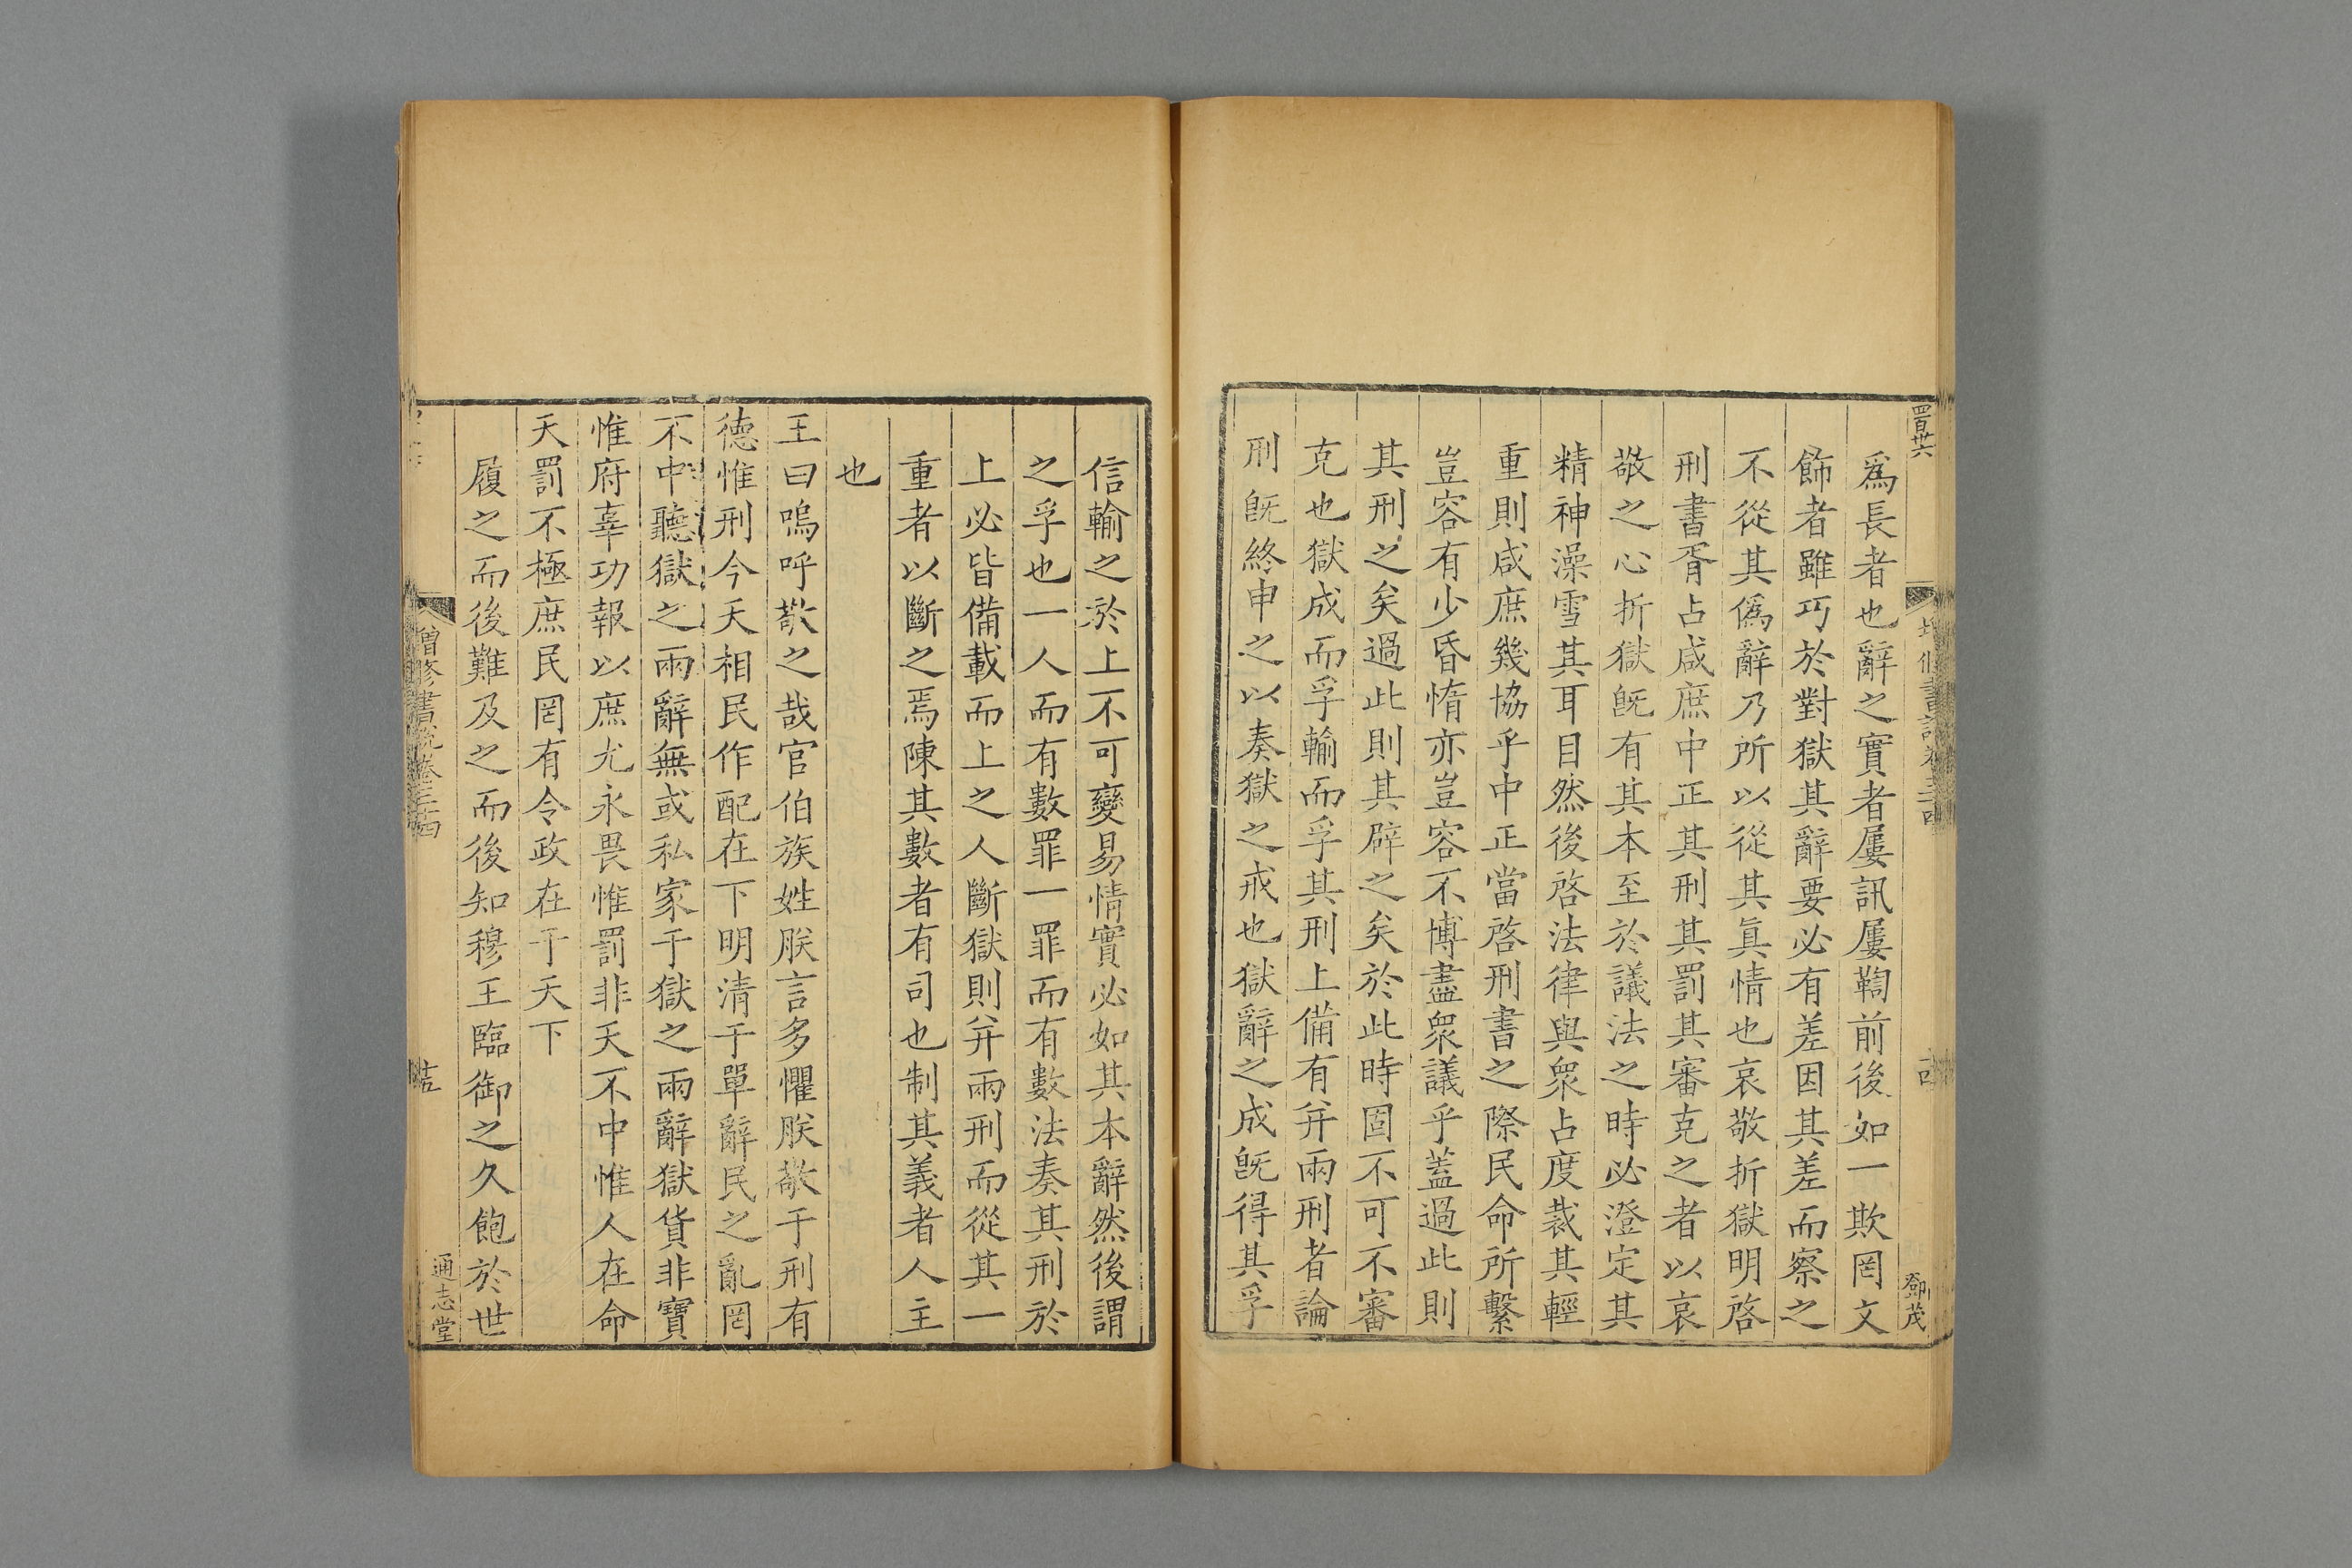 爲長者也辭之實者屢訊屢鞫前後如一欺罔文
飾者雖巧於對獄其辭要必有差因其差而察之
不從其僞辭乃所以從其眞情也哀敬折獄明啓
刑書胥占咸庶中正其刑其罰其審克之者以哀
敬之心折獄旣有其本至於議法之時必澄定其
精神澡雪其耳目然後啓法律與衆占度裁其輕
重則咸庶幾協乎中正當啓刑書之際民命所繫
豈容有少昏惰亦豈容不博盡衆議乎蓋過此則
其刑之矣過此則其辟之矣於此時固不可不審
克也獄成而孚輸而孚其刑上備有幷兩刑者論
刑旣終申之以奏獄之戒也獄辭之成旣得其孚
鄧茂
信輸之於上不可變易情實必如其本辭然後謂
之孚也一人而有數罪一罪而有數法奏其刑於
上必皆備載而上之人斷獄則幷兩刑而從其一
重者以斷之焉陳其數者有司也制其義者人主
也
王曰嗚呼敬之哉官伯族姓朕言多懼朕敬于刑有
德惟刑今天相民作配在下明清于單辭民之亂罔
不中聽獄之兩辭無或私家于獄之兩辭獄貨非寶
惟府辜功報以庶尤永畏惟罰非天不中惟人在命
天罰不極庶民罔有令政在于天下
履之而後難及之而後知穆王臨御之久飽於世
增修書說卷三十四
通志堂